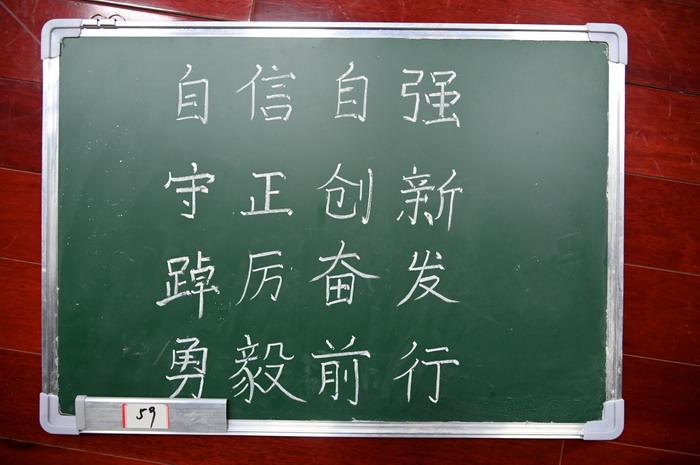 自信自强
守正创新
踔厉奋发
勇毅前行
59